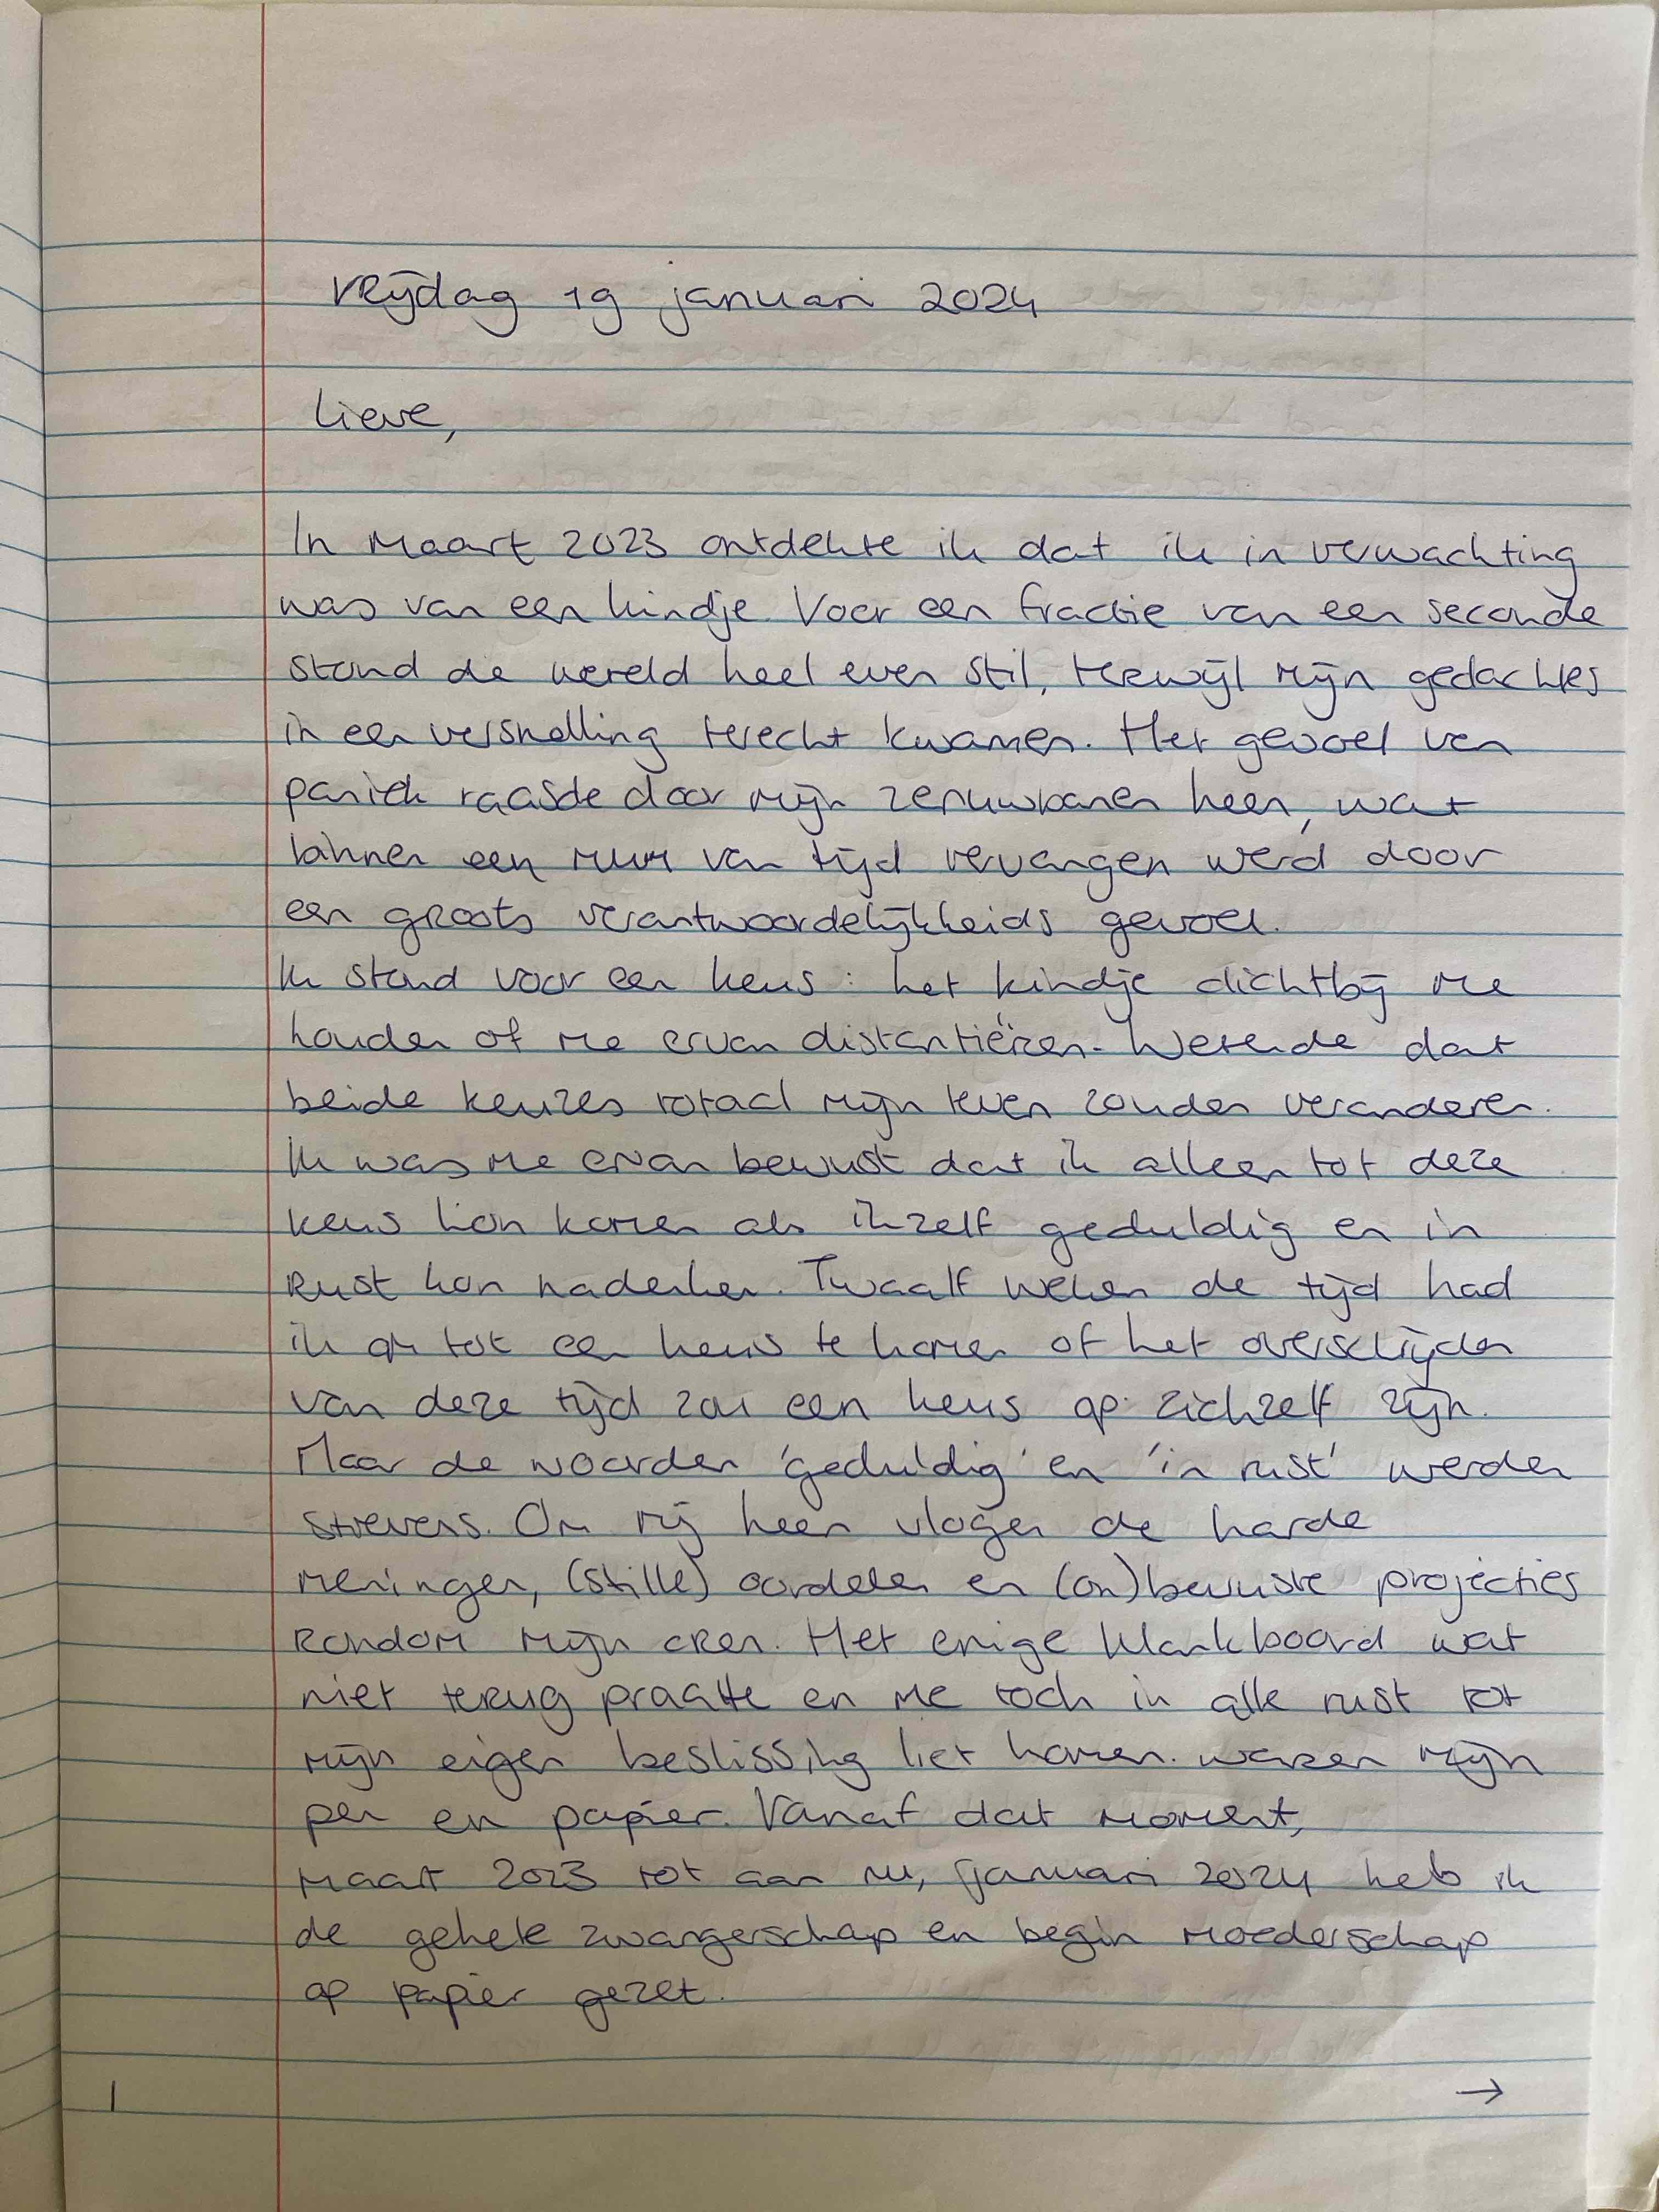 vrijdag 19 januari 2024
Lieve,
In maart 2023 ontdekte ik dat ik in verwachting
was van een kindje. Voor een fractie van een seconde
stond de wereld heel even stil, terwijl mijn gedachtes
in een versnelling terecht kwamen. Het gevoel van
paniek raasde door mijn zenuwbanen heen, wat
binnen een mum van tijd vervangen werd door
een groots verantwoordelijkheids gevoel.
Ik stond voor een keus: het kindje dichtbij me
houden of me ervan distantiëren. Wetende dat
beide keuzes totaal mijn leven zouden veranderen.
Ik was me ervan bewust dat ik alleen tot deze
keus kon komen als ikzelf geduldig en in
rust kon nadenken. Twaalf weken de tijd had
ik om tot een keus te komen of het overschrijden
van deze tijd zou een keus op zichzelf zijn.
Maar de woorden 'geduldig' en 'in rust' werden
strevens. Om mij heen vlogen de harde
meningen, (stille) oordelen en (on)bewuste projecties
rondom mijn oren. Het enige klankboord wat
niet terug praatte en me toch in alle rust tot
mijn eigen beslissing liet komen. waren mijn
pen en papier. Vanaf dat moment,
maart 2023 tot aan nu, januari 2024 heb ik
de gehele zwangerschap en begin moederschap
op papier gezet.
1 →